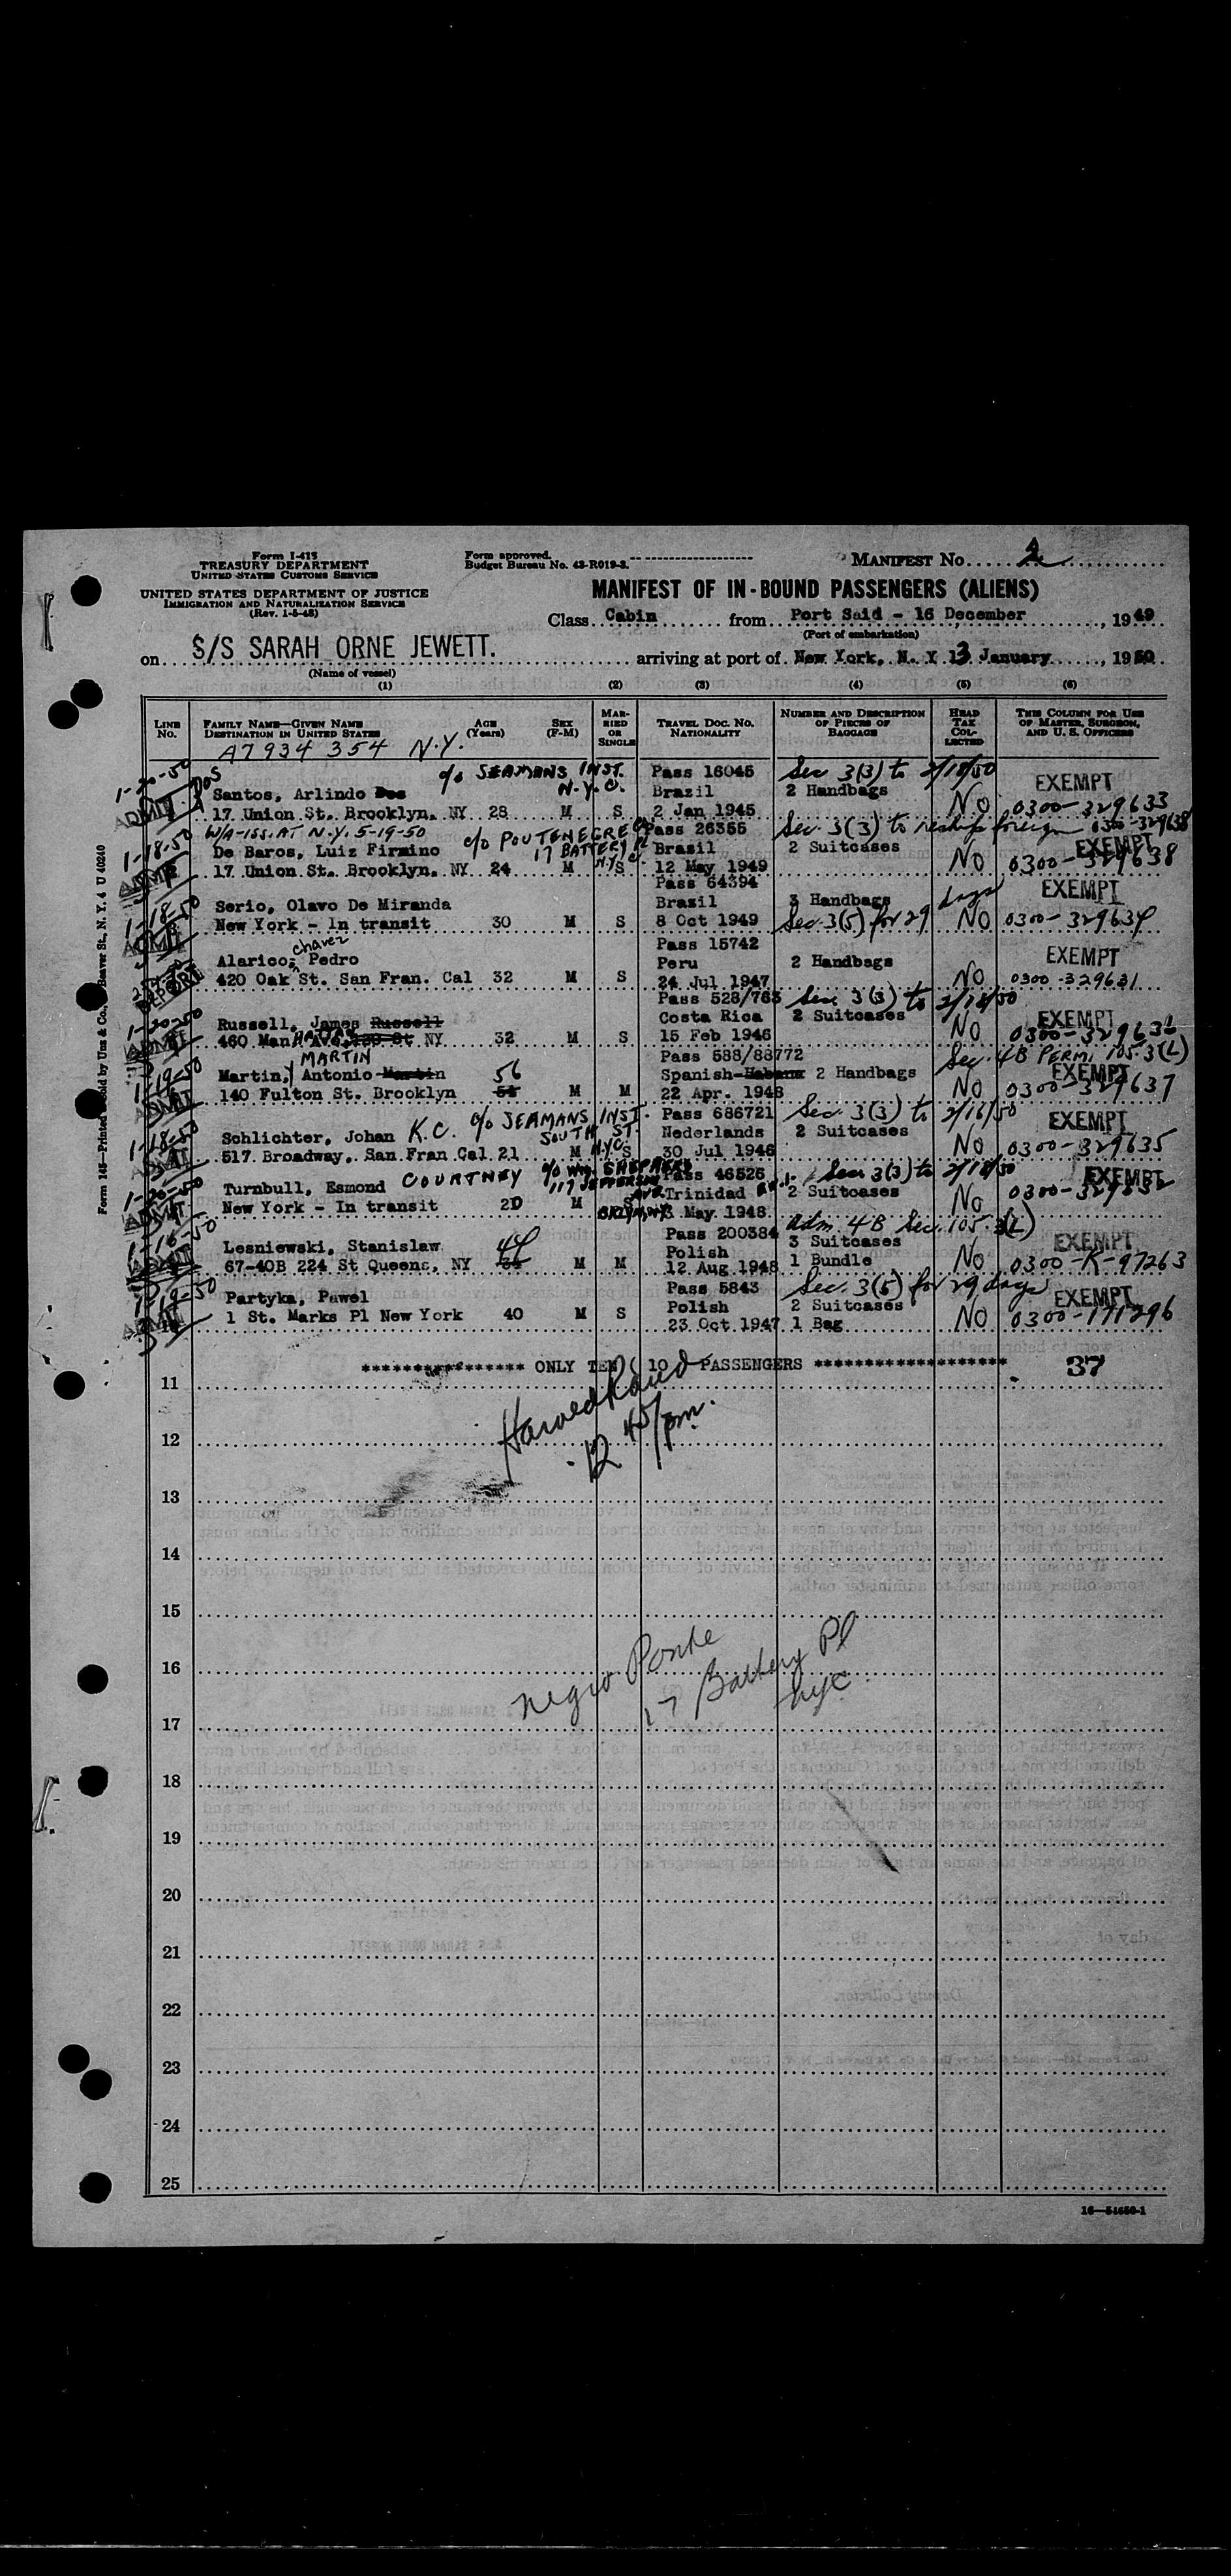 Form I-415
TREASURY DEPARTMENT
UNITED STATES CUSTOMS SERVICE
UNITED STATES DEPARTMENT OF JUSTICE
IMMIGRATION AND NATURALIZATION SERVICE
(Rev. 1-5-48)
Form approved.
Budget Bureau No. 43-R019-3.
MANIFEST No. 2
MANIFEST OF IN-BOUND PASSENGERS (ALIENS)
Class Cabin from Port Said - 16 December, 1949
(Port of embarkation)
on S/S SARAH ORNE JEWETT. arriving at port of New York, N. Y 13 January, 1950
(Name of vessel)
(1) (2) (3) (4) (5) (6)
LINE No.
FAMILY NAME—GIVEN NAME
DESTINATION IN UNITED STATES
AGE (Years)
SEX (F-M)
MARRIED OR SINGLE
TRAVEL DOC. NO. NATIONALITY
NUMBER AND DESCRIPTION OF PIECES OF BAGGAGE
HEAD TAX COLLECTED
THIS COLUMN FOR USE OF MASTER, SURGEON, AND U. S. OFFICERS
A7 934 354 N.Y.
1-20-50 ADMIT DOS c/o SEAMANS INST. N.Y.C. Pass 16045 Sec 3(3) to 2/18/50 EXEMPT
Santos, Arlindo Dos Brazil 2 Handbags
17 Union St. Brooklyn, NY 28 M S 2 Jan 1945 No 0300-329633
W/A-ISS. AT N.Y. 5-19-50 c/o Pass 26355 Sec. 3(3) to reship foreign 0300-329638
1-18-50 De Baros, Luiz Firmino 17 BATTERY Pl N.Y.C. Brasil 2 Suitcases EXEMPT
17 Union St. Brooklyn, NY 24 M S 12 May 1949 No 0300-329638
Pass 64394
1-18-50 Serio, Olavo De Miranda Brazil 3 Handbags EXEMPT
ADMIT New York - In transit 30 M S 8 Oct 1949 Sec 3(5) for 29 days No 0300-329634
chavez Pass 15742
Alarico, Pedro Peru 2 Handbags EXEMPT
420 Oak St. San Fran. Cal 32 M S 24 Jul 1947 No 0300-329631
Pass 528/763 Sec 3(3) to 2/18/50
1-20-50 Russell, James Russell Costa Rica 2 Suitcases EXEMPT
460 Manhattan Ave NY 32 M S 15 Feb 1946 No
MARTIN Pass 588/88772 Sec. 4B PERMI 105.3(L)
1-19-50 Martin, Antonio Martin 56 Spanish-Habana 2 Handbags EXEMPT
140 Fulton St. Brooklyn M M 22 Apr. 1948 No 0300-329637
c/o SEAMANS INST. SOUTH ST. N.Y.C. Pass 686721 Sec. 3(3) to 2/16/50
1-18-50 Schlichter, Johan K.C. Nederlands 2 Suitcases EXEMPT
517 Broadway, San Fran Cal 21 M S 30 Jul 1946 No 0300-329635
c/o Wm. SHEPHERD 117 JEFFERSON AVE BKLYN, NY Pass 46526 Sec 3(3) to 2/18/50
1-20-50 Turnbull, Esmond COURTNEY Trinidad 2 Suitcases EXEMPT
ADMIT New York - In transit 20 M S 3 May 1948 No 0300-329632
Pass 200384 adm. 4B Sec. 105.3(L)
1-16-50 Lesniewski, Stanislaw 44 Polish 3 Suitcases EXEMPT
67-40B 224 St Queens, NY M M 12 Aug 1948 1 Bundle No 0300-K-97263
Pass 5843 Sec. 3(5) for 29 days
1-19-50 Partyka, Pawel Polish 2 Suitcases EXEMPT
ADMIT 1 St. Marks Pl New York 40 M S 23 Oct 1947 1 Bag No 0300-171296
**************** ONLY TEN ( 10 ) PASSENGERS ******************* 37
11
12
12 45/pm.
13
14
15
16
17 Battery Pl
nyc.
17
18
19
20
21
22
23
24
25
16—54650-1